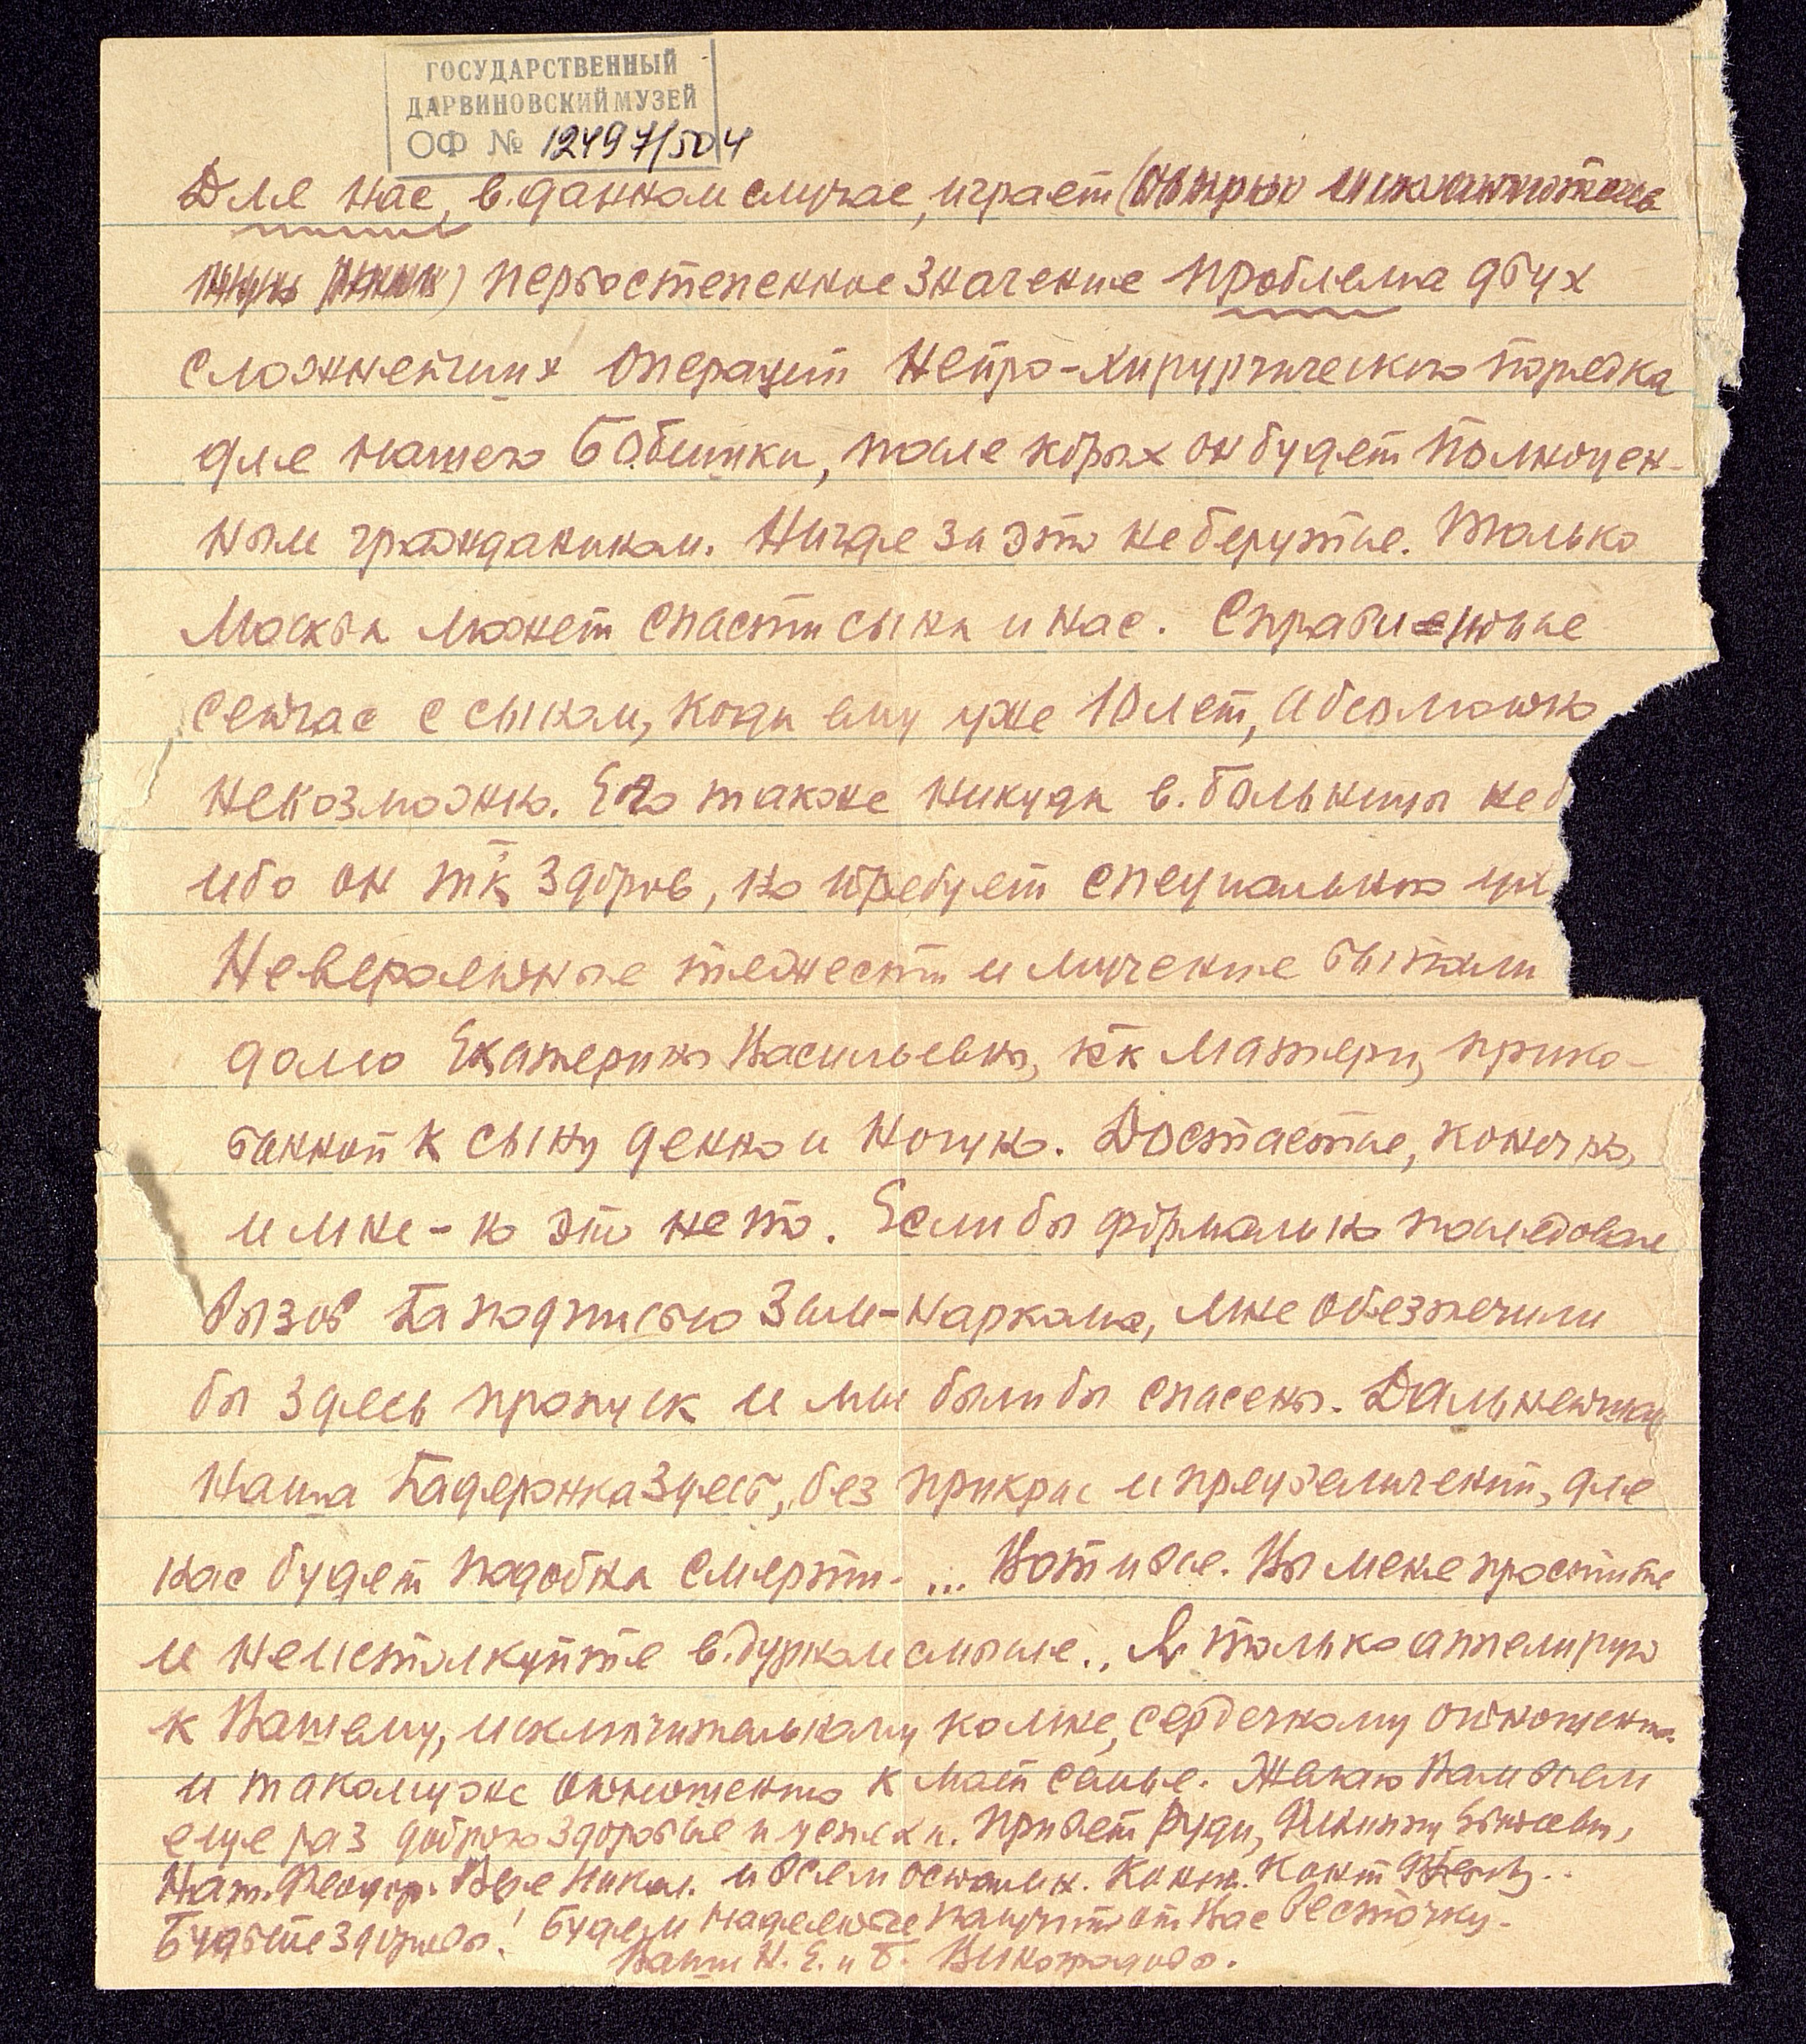 ГОСУДАРСТВЕННЫЙ
ДАРВИНОВСКИЙ МУЗЕЙ
ОФ № 12497/504
Для нас, в данном случае, играет
первостепенное значение проблема двух
сложнейших операций Нейро-хирургического порядка
для нашего Бобишки, после котрых он будет полноцен-
ным гражданином. Нигде за это не берутся. Только
Москва может спасти сына и нас. Справиться
сейчас с сыном, когда ему уже 10 лет, абсолютно
невозможно. Его также никуда в больницы не б
ибо он так здоров, но требует специального ух
Невероятные тяжести и мучение выпали
долю Екатерины Васильевны, как матери, прико-
ванной к сыну денно и нощно. Достается, конечно,
и мне - но это не то. Если бы формально последовал
вызов за подписью Зам-Наркома, мне обеспечили
бы здесь пропуск и мы были бы спасены. Дальнейшая
Наша задержка здесь, без прикрас и преувеличений, для
нас будет подобна смерти. ... Вот и все. Вы меня простите
и не истолкуйте в дурном смысле.. Я только апеллирую
к Вашему, исключительному ко мне, сердечному отношению
и такому же отношению к моей семье. Желаю Вам всем
еще раз доброго здоровья и успеха. Привет Руди,
Нат. Феодор. Вере Никол. и всем остальн.
Будьте здоровы! Будем надеяться получить от Вас весточку.
Ваши Н. Е. и Б. Виноградовы.